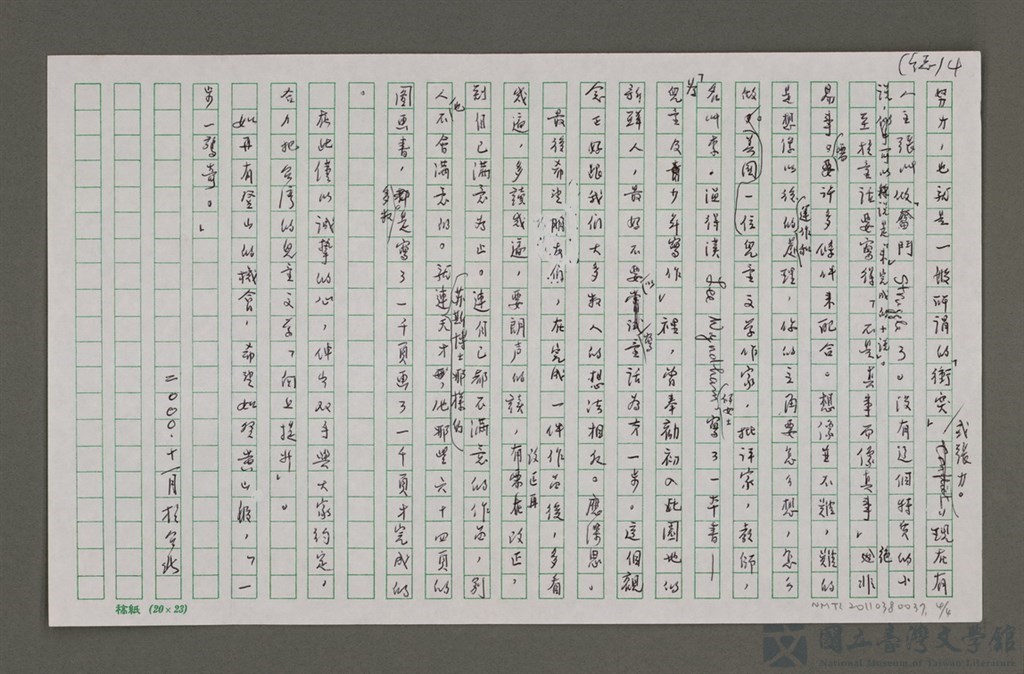 (續)4
努力，也就是一般所謂的「衝突」或張力。現在有
人主張叫做「奮鬥」Struggle了。沒有這個特質的小
說，似乎可以標說是「未完成的小說」。
至於童話要寫得「不是真事而像真事」絕非
易事。要需許多條件來配合。想像並不難，難的
是想像以後的運作和處理，你的主角要怎么想，怎么
做。美國一位兒童文學作家，批評家，教師，
名叫李．溫得漢 Lee Wyndham女士寫了一本書——
為兒童及青少年寫作」裡，曾奉勸初入此園地的
新鮮人，最好不要以嘗試寫童話為第一步。這個觀
念正好跟我們大多數人的想法相反。應深思。
最後希望朋友們，在完成一件作品後，多看
幾遍，多讀幾遍，要朗声的讀，有改正再改正，
到自已滿意為止。連自已都不滿意的作品，別
人不会滿意的。就連天才蘇斯博士那樣的，他那些六十四頁的
圖画書，多數是寫了一千頁画了一千頁才完成的
。
在此僅以誠摯的心，伸出双手與大家約定，
合力把台灣的兒童文学「向上提升」。
如再有登山的機會，希望如登黃山般，「一
步一驚奇。」
二〇〇〇．十一月於台北
稿紙 (20×23)
NMTL 20110380037, 4/4
國立臺灣文學館
National Museum of Taiwan Literature